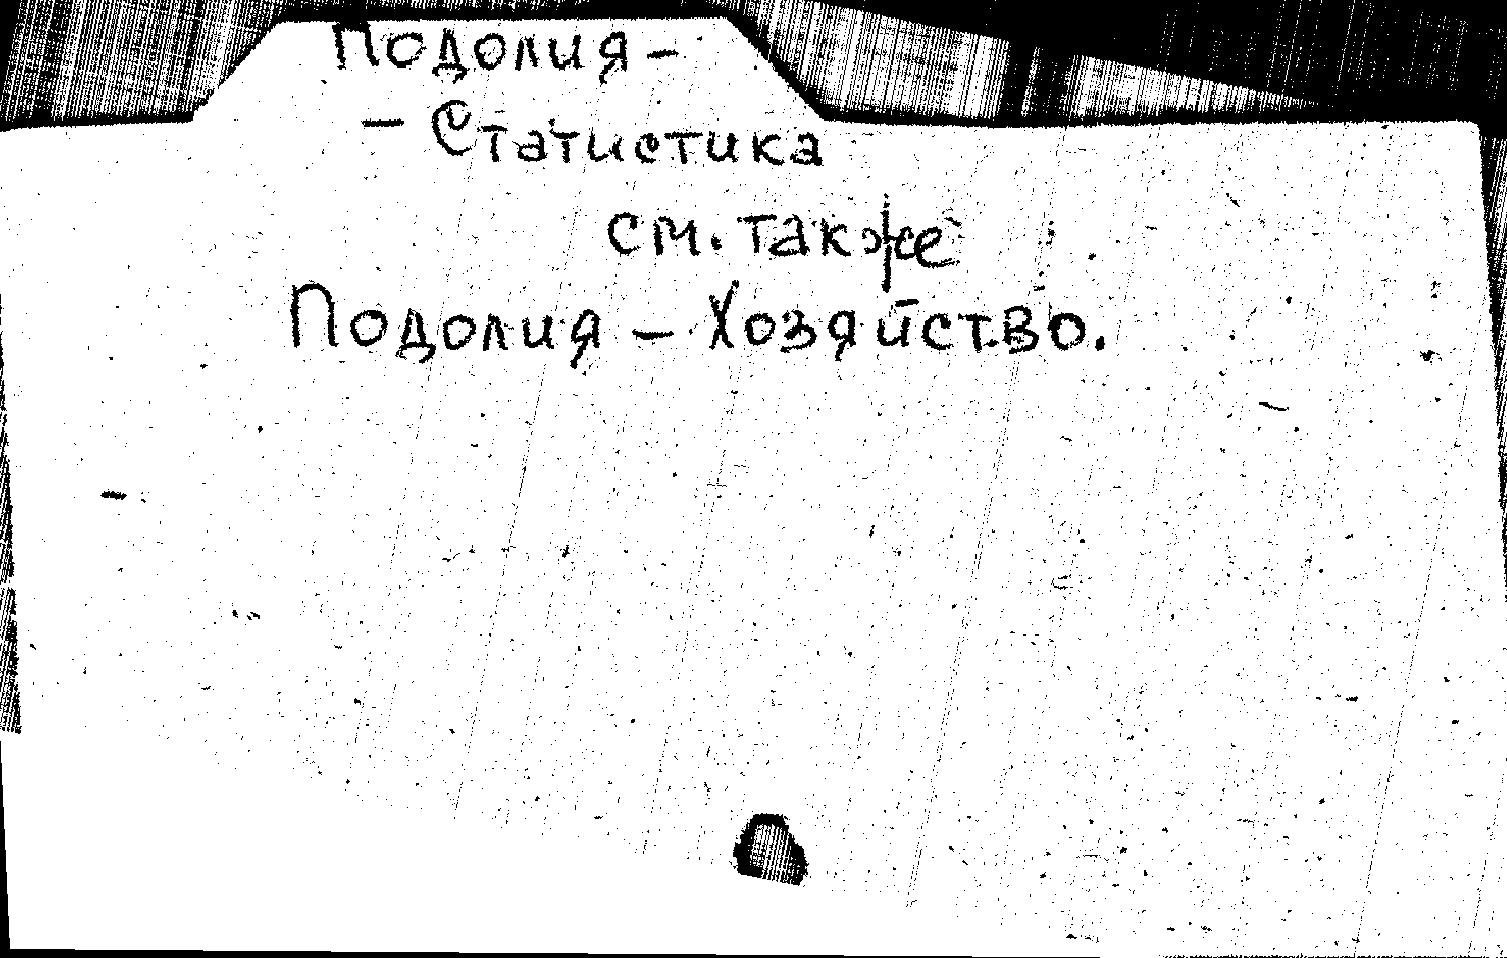 Подолия –
– Статистика
см. также
Подолия – Хозяйство.